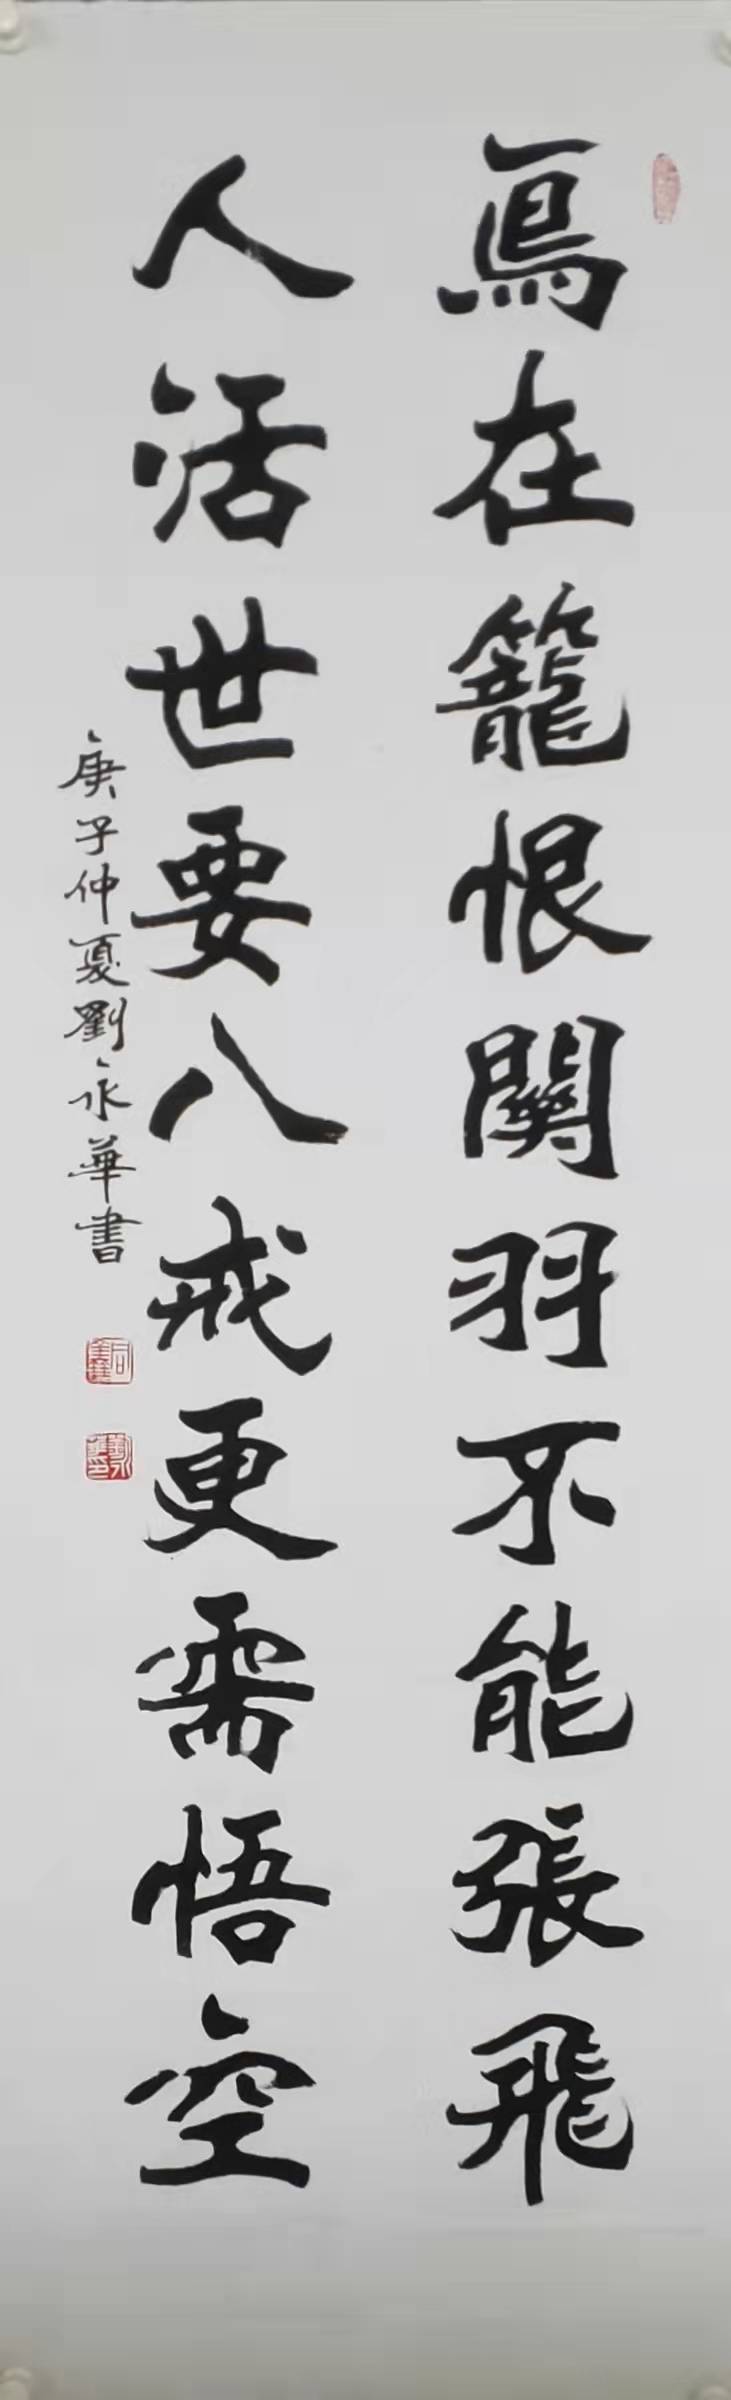 鳥在籠恨關羽不能張飛
人活世要八戒更需悟空
庚子仲夏劉永華書